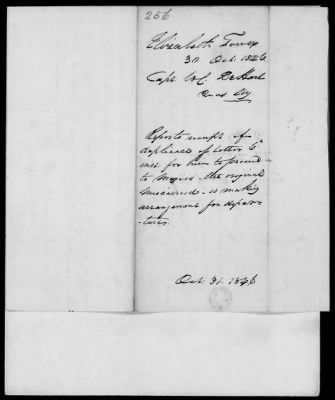 256
Elizabeth Town
30 Oct. 1846
Capt W.C. De Hart
Reports receipt of
duplicate of letter
for him to proceed
to Mexico - the original
- is making
arrangement for depar-
-ture.
Oct. 31. 1846